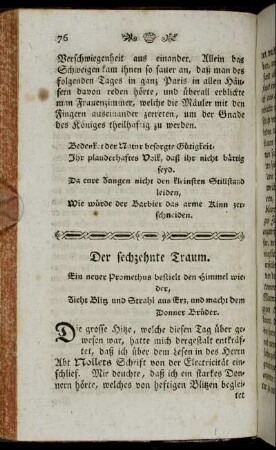 76
Verschwiegenheit aus einander. Allein das
Schweigen kam ihnen so sauer an, daß man des
folgenden Tages in ganz Paris in allen Häu-
sern davon reden hörte, und überall erblickte
man Frauenzimmer, welche die Mäuler mit den
Fingern auseinander zerreten, um der Gnade
des Königes theilhaftig zu werden.
Bedenkt der Natur besorgte Gütigkeit:
Ihr plauderhaftes Volk, daß ihr nicht bärtig
seyd.
Da eure Zungen nicht den kleinsten Stillstand
leiden,
Wie würde der Barbier das arme Kinn zer-
schneiden.
Der sechzehnte Traum.
Ein neuer Prometheus bestielt den Himmel wie-
der,
Zieht Blitz und Strahl aus Erz, und macht dem
Donner Brüder.
Die grosse Hitze, welche diesen Tag über ge-
wesen war, hatte mich dergestalt entkräf-
tet, daß ich über dem Lesen in des Herrn
Abt Nollets Schrift von der Electricität ein-
schlief. Mir deuchte, daß ich ein starkes Don-
nern hörte, welches von heftigen Blitzen beglei-
tet